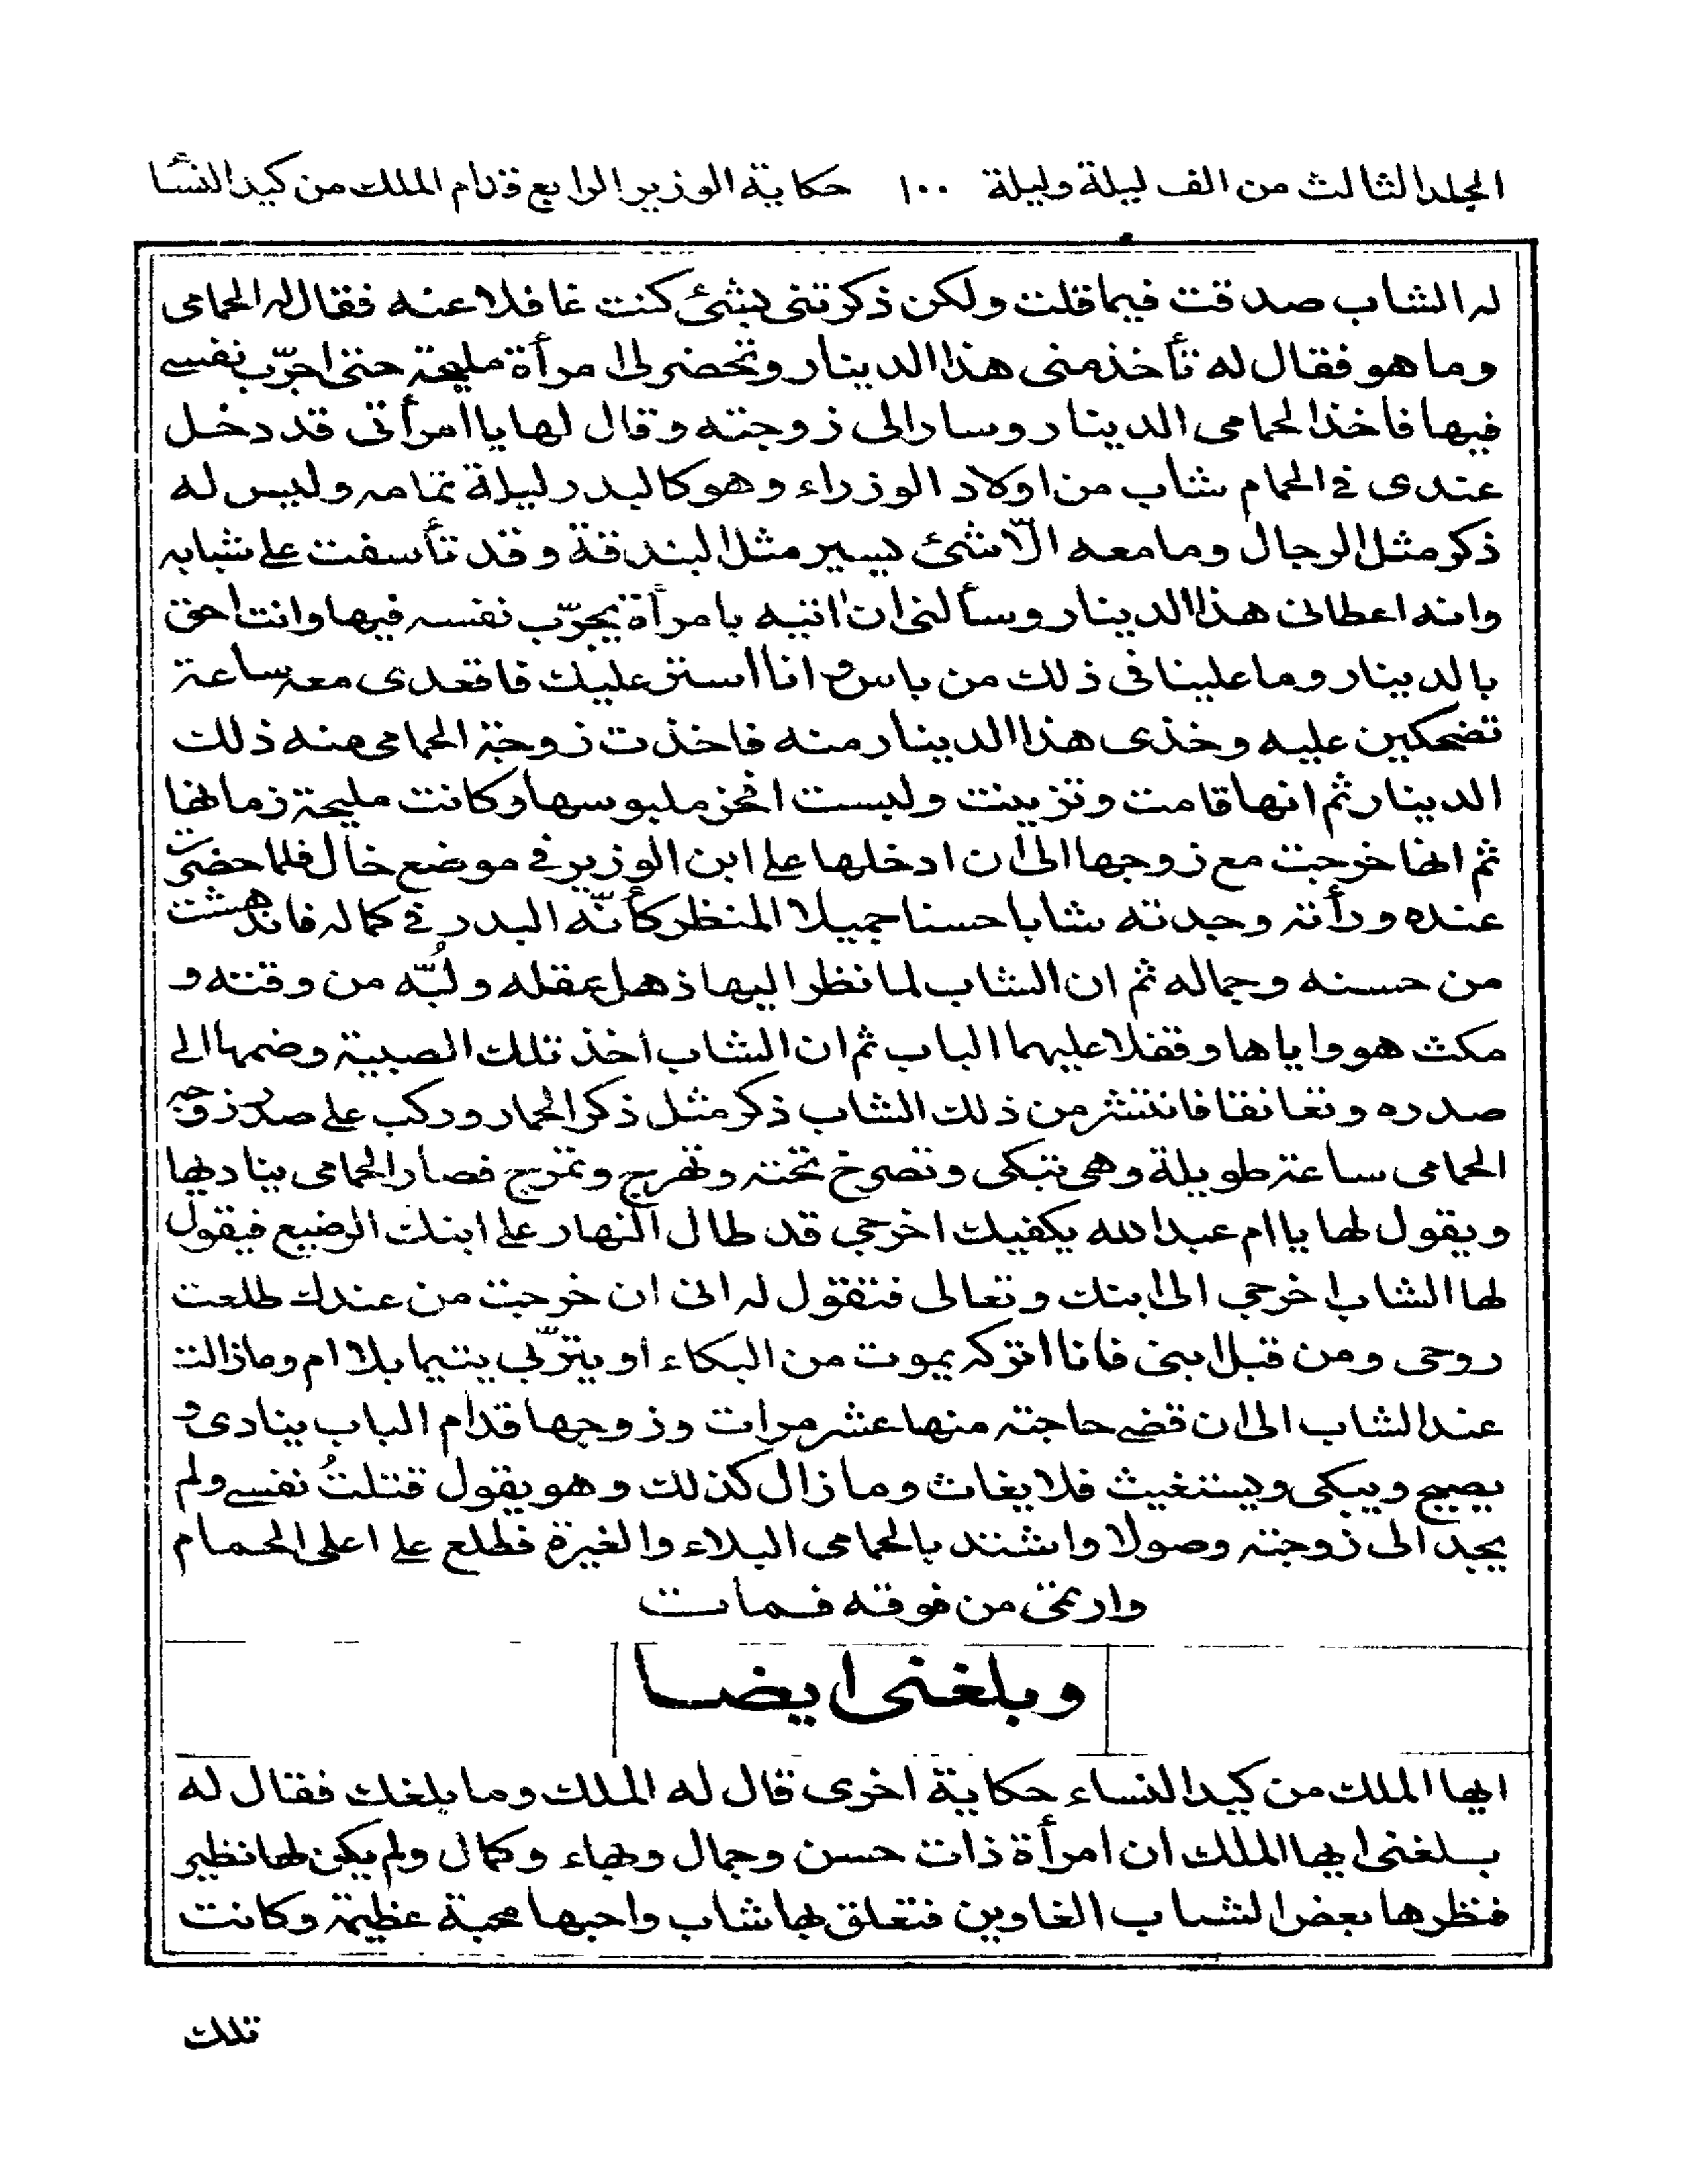 المجلد الثالث من الف ليلة وليلة ١٠٠ حكاية الوزير الرابع قدام الملك من كيد النسا
له الشاب صدقت فيما قلت ولكن ذكرتنى بشئ كنت غافلا عنه فقال له الحمامى
وما هو فقال له تأخذ منى هذا الدينار وتحضر لى امرأة مليحة حتى اجرّب نفسى
فيها فاخذ الحمامى الدينار وسار الى زوجته وقال لها يا امرأتى قد دخل
عندى فى الحمام شاب من اولاد الوزراء وهو كالبدر ليلة تمامه وليس له
ذكر مثل الرجال وما معه الّا شئ يسير مثل البندقة وقد تأسفت على شبابه
وانه اعطانى هذا الدينار وسألنى ان اتيه بامرأة يجرّب نفسه فيها وانت احق
بالدينار وما علينا فى ذلك من باس وانا استر عليك فاقعدى معه ساعة
تضحكين عليه وخذى هذا الدينار منه فاخذت زوجة الحمامى منه ذلك
الدينار ثم انها قامت وتزينت ولبست افخر ملبوسها وكانت مليحة زمانها
ثم انها خرجت مع زوجها الى ان ادخلها على ابن الوزير فى موضع خال فلما حضرت
عنده ورأته وجدته شابا حسنا جميلا المنظر كأنّه البدر فى كماله فاندهشت
من حسنه وجماله ثم ان الشاب لما نظر اليها ذهل عقله ولُبّه من وقته و
مكث هو واياها وقفلا عليهما الباب ثم ان الشاب اخذ تلك الصبية وضمها الى
صدره وتعانقا فانتشر من ذلك الشاب ذكر مثل ذكر الحمار وركب على صدر زوجة
الحمامى ساعة طويلة وهى تبكى وتصرخ تحته وتهرج وتمرج فصار الحمامى يناديها
ويقول لها يا ام عبد الله يكفيك اخرجى قد طال النهار على ابنك الرضيع فيقول
لها الشاب اخرجى الى ابنك وتعالى فتقول له انى ان خرجت من عندك طلعت
روحى ومن قبل ابنى فانا اتركه يموت من البكاء او يتربّى يتيما بلا ام وما زالت
عند الشاب الى ان قضى حاجته منها عشر مرات وزوجها قدام الباب ينادى و
يصيح ويبكى ويستغيث فلا يغاث وما زال كذلك وهو يقول قتلتُ نفسى ولم
يجد الى زوجته وصولا واشتد بالحمامى البلاء والغيرة فطلع على اعلى الحمام
وارتمى من فوقه فمات
وبلغنى ايضا
ايها الملك من كيد النساء حكاية اخرى قال له الملك وما بلغك فقال له
بلغنى ايها الملك ان امرأة ذات حسن وجمال وبهاء وكمال ولم يكن لها نظير
فنظرها بعض الشباب الغاوين فتعلق بها شاب واحبها محبة عظيمة وكانت
تلك